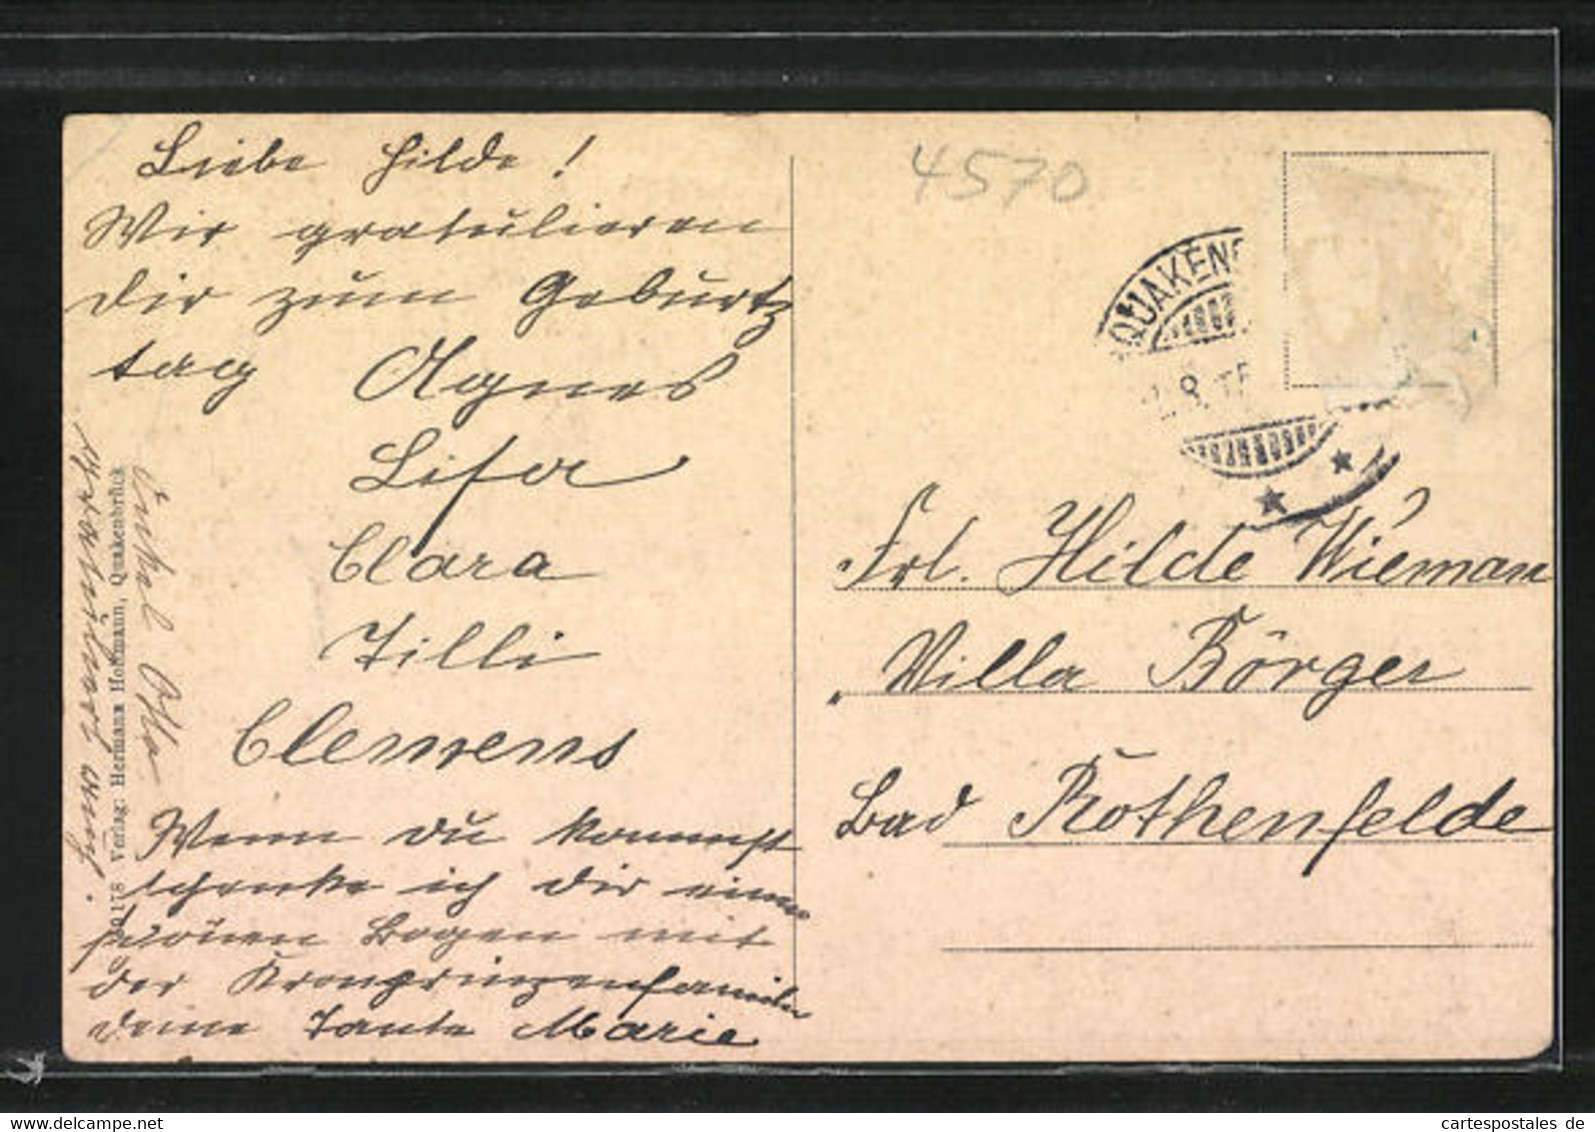 Liebe Hilde!
Wir gratulieren
dir zum Geburts
tag Agnes
Lisa
Clara
Tilli
Clemens
Wenn du kommst
schenke ich dir einen
schönen Bogen mit
der Kronprinzenfamilie
deine Tante Marie
Onkel Otto
gratuliert auch.
Verlag: Hermann Hoffmann, Quakenbrück
4570
QUAKENB
8.
Frl. Hilde Wieman
Villa Börger
Bad Rothenfelde
cartespostales de